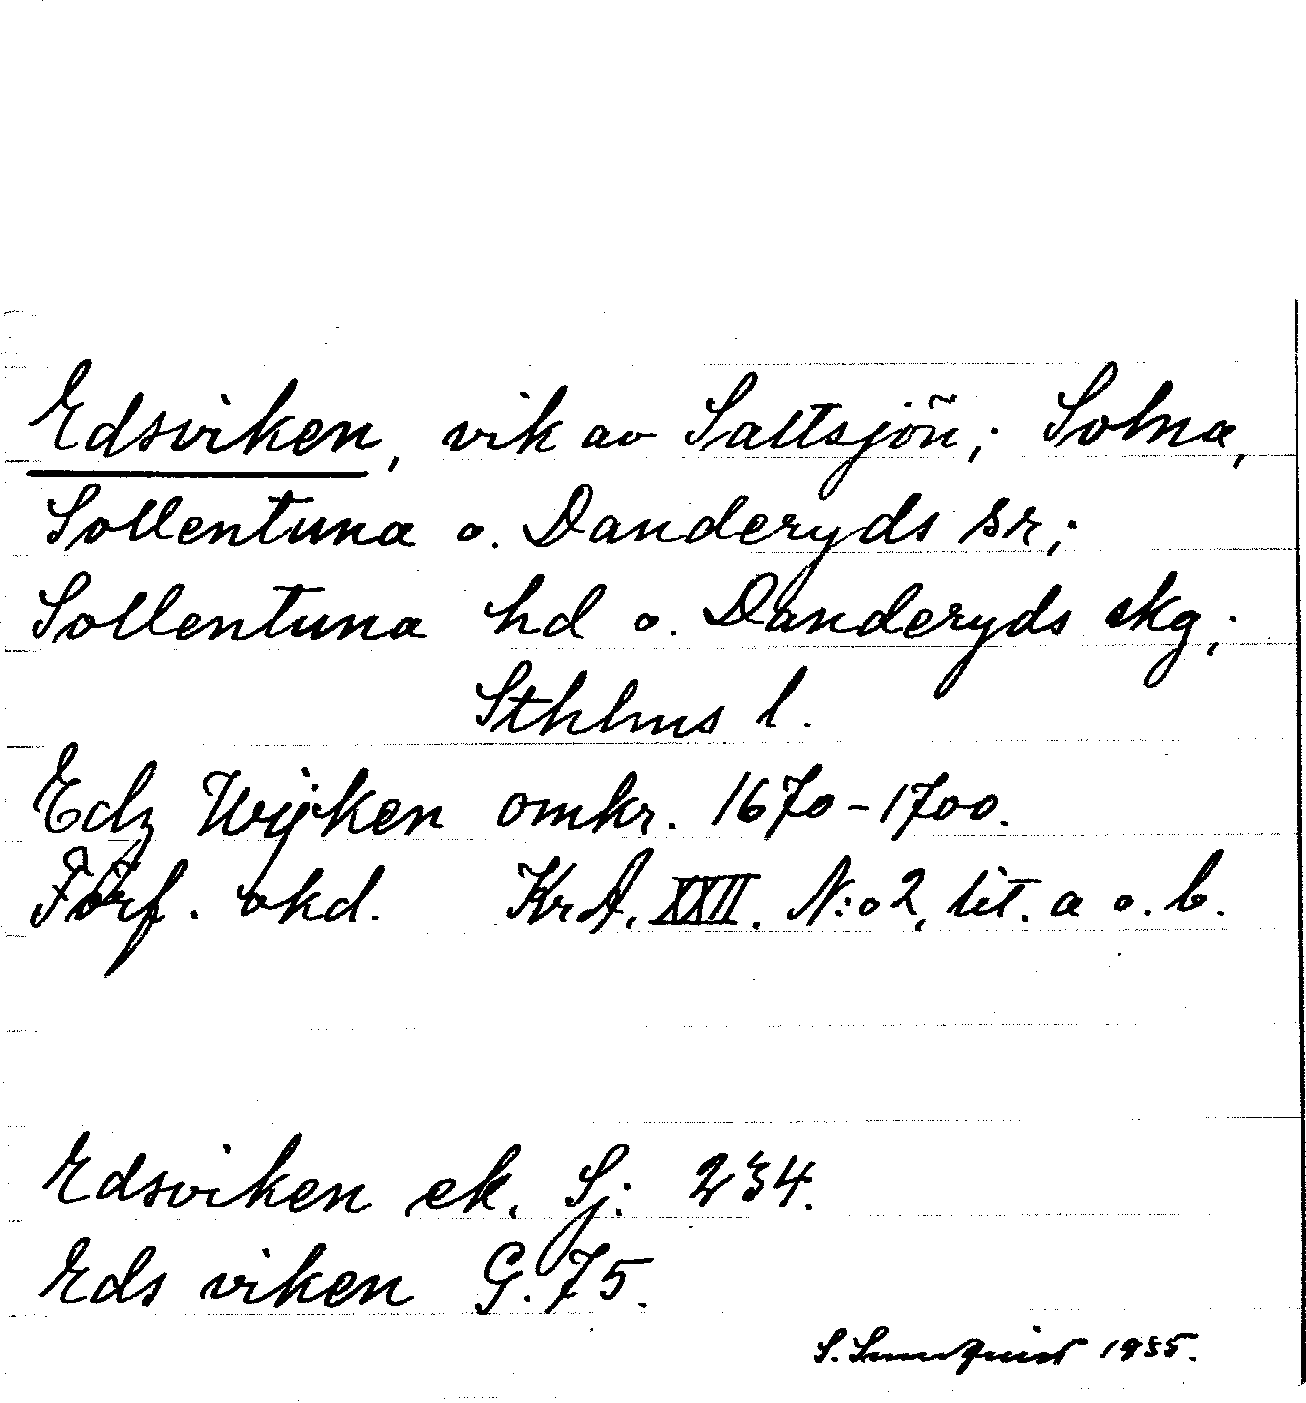 Edsviken, vik av Saltsjön; Solna,
Sollentuna o. Danderyds sr;
Sollentuna hd o. Danderyds skg;
Sthlms l.
Edz Wijken omkr. 1670-1700.
Förf. okd. KrA. XXII. N:o 2, lit. a o. b.
Edsviken ek. Sj: 234.
Eds viken G. 75.
S. 1935.